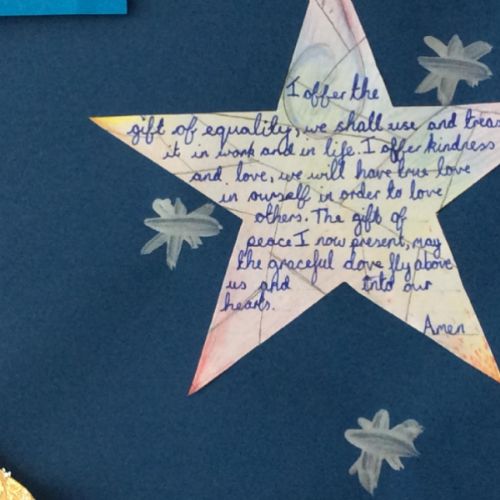 I offer the
gift of equality, we shall use and treas
it in work and in life. I offer kindness
and love, we will have true love
in ourself in order to love
others. The gift of
peace I now present, may
the graceful dove fly above
us and into our
hearts.
Amen